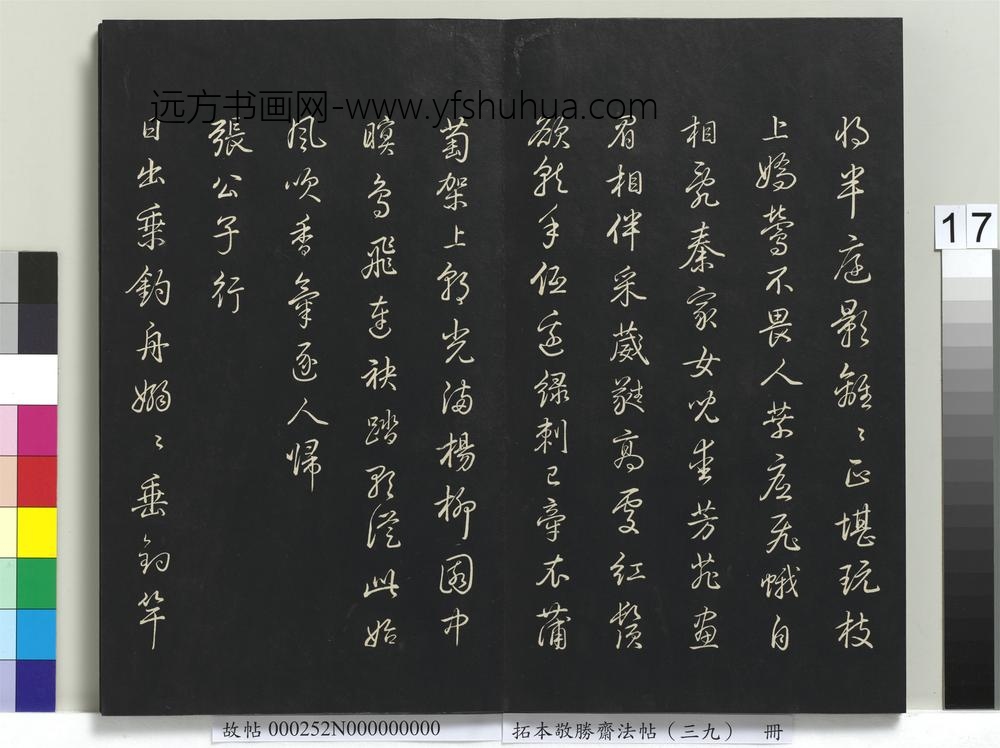 远方书画网-www.yfshuhua.com
将半庭影離〻正堪玩枝
上嬌鶯不畏人葉底飛蛾自
相亂秦家女兒愛芳菲畫
眉相伴采葳蕤高處紅鬚
欲就手低邊綠刺已牽衣蒲
萄架上朝光滿楊柳園中
暝鳥飛連袂踏歌從此始
風吹香氣逐人歸
張公子行
日出乘釣舟嫋〻垂釣竿
17
故帖 000252N000000000
拓本敬勝齋法帖（三九） 冊